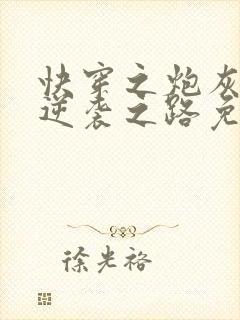 快穿之炮灰
逆袭之路免
徐光裕